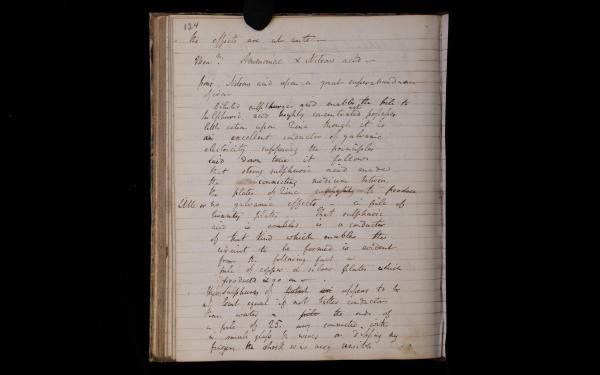 124
the effects are
Ammoniac & Nitrous acid —
pour Nitrous acid upon a great superabundance
of iron
Diluted sulphuric acid enables the pile to
Sulphuric acid highly concentrated possesses
little action upon Zinc though it is
an excellent conductor of galvanic
electricity supposing the principles
laid down true it follows
that strong sulphuric acid made
the connecting medium between
the plates of Zinc to produce
little or no galvanic effects – a pile of
twenty plates That sulphuric
acid is a conductor
of that kind which enables the
circuit to be formed is evident
from the following fact a
pile of copper & silver plates which
produced
Sulphuret of appears to be
at least equal if not better conductor
than water a the ends of
a pile of 25. were connected with
a small glass wires on dipping my
fingers the shock was very sensible